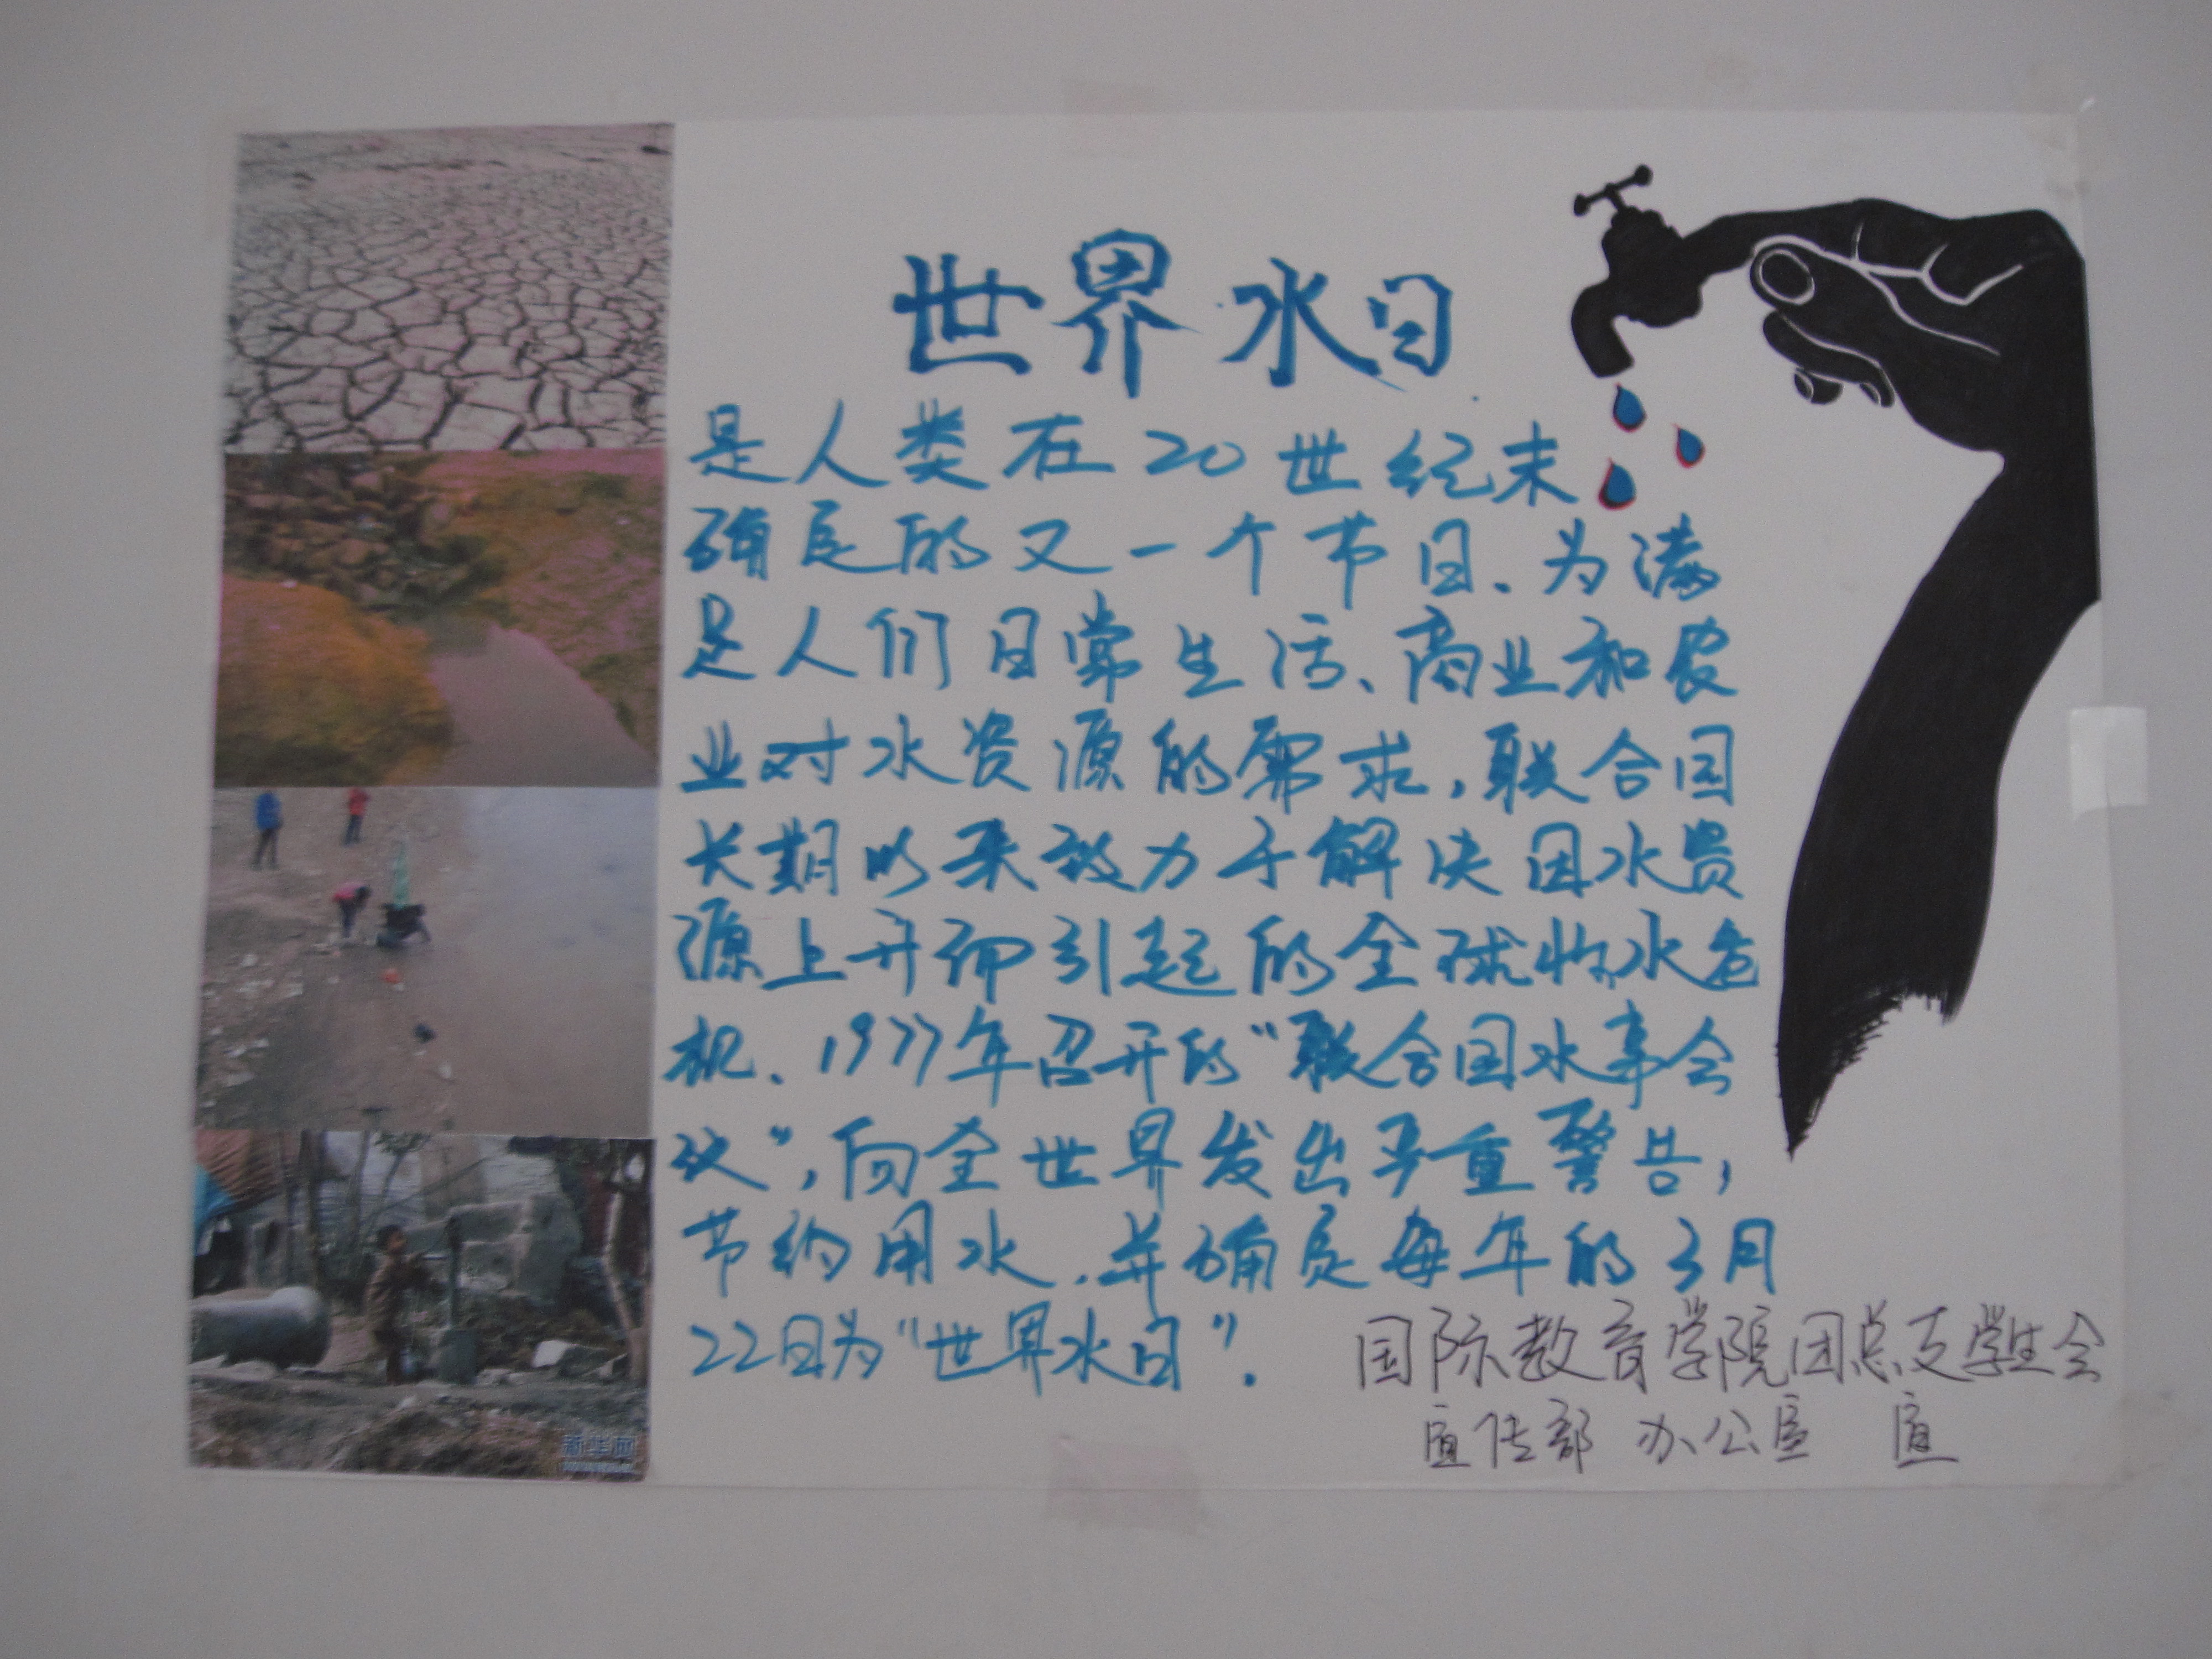 世界水日
是人类在20世纪末
确定的又一个节日、为满
足人们日常生活、商业和农
业对水资源的需求,联合国
长期以来致力于解决因水贵
源上升而引起的全球性水危
机、1977年召开的“联合国水事会
议”,向全世界发出严重警告,
节约用水,并确定每年的3月
22日为“世界水日”.
国际教育学院团总支学生会
宣传部 办公室 宣
新华网